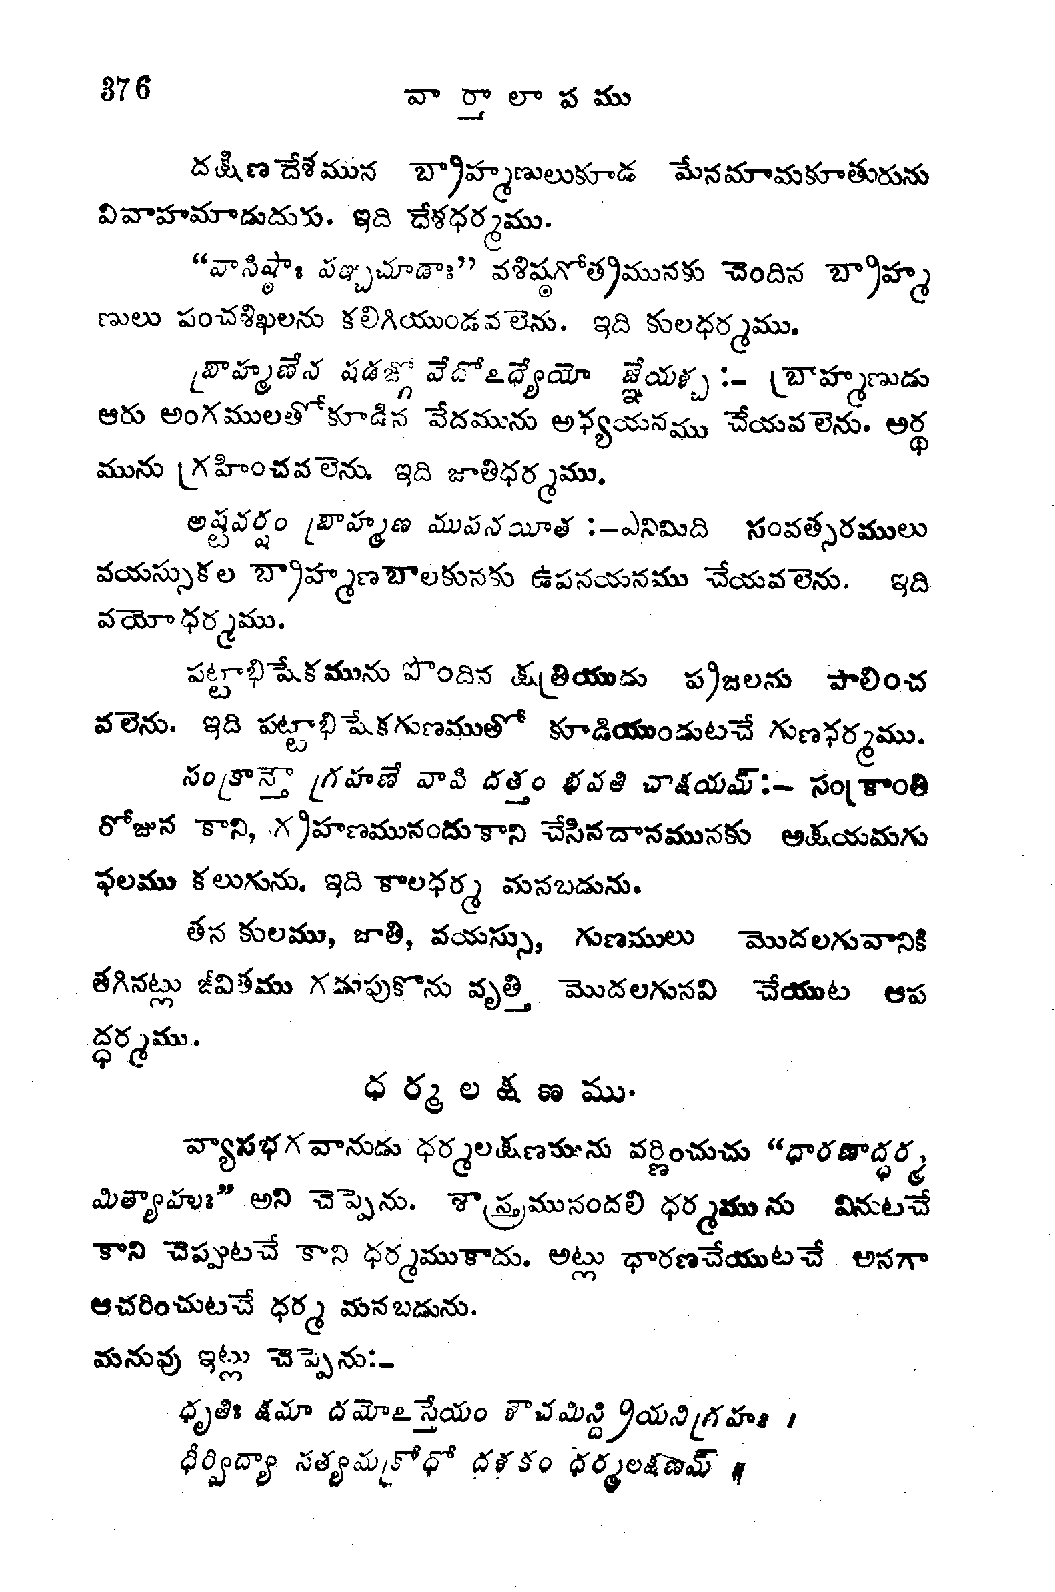 376
వా ర్తా లా ప ము
దక్షిణదేశమున బ్రాహ్మణులుకూడ మేనమామకూతురును
వివాహమాడుదురు. ఇది దేశధర్మము.
“వాసిష్ఠాః పఞ్చచూడాః” వశిష్ఠగోత్రమునకు చెందిన బ్రాహ్మ
ణులు పంచశిఖలను కలిగియుండవలెను. ఇది కులధర్మము.
బ్రాహ్మణేన షడఙ్గో వేదోఽధ్యేయో జ్ఞేయశ్చ :– బ్రాహ్మణుడు
ఆరు అంగములతోకూడిన వేదమును అధ్యయనము చేయవలెను. అర్థ
మును గ్రహించవలెను. ఇది జాతిధర్మము.
అష్టవర్షం బ్రాహ్మణ ముపనయీత :–ఎనిమిది సంవత్సరములు
వయస్సుకల బ్రాహ్మణబాలకునకు ఉపనయనము చేయవలెను. ఇది
వయోధర్మము.
పట్టాభిషేకమును పొందిన క్షత్రియుడు ప్రజలను పాలించ
వలెను. ఇది పట్టాభిషేకగుణముతో కూడియుండుటచే గుణధర్మము.
సంక్రాన్తౌ గ్రహణే వాపి దత్తం భవతి చాక్షయమ్:– సంక్రాంతి
రోజున కాని, గ్రహణమునందుకాని చేసినదానమునకు అక్షయమగు
ఫలము కలుగును. ఇది కాలధర్మ మనబడును.
తన కులము, జాతి, వయస్సు, గుణములు మొదలగువానికి
తగినట్లు జీవితము గడపుకొను వృత్తి మొదలగునవి చేయుట ఆప
ద్ధర్మము.
ధ ర్మ ల క్ష ణ ము.
వ్యాసభగవానుడు ధర్మలక్షణమును వర్ణించుచు “ధారణాద్ధర్మ
మిత్యాహుః” అని చెప్పెను. శాస్త్రమునందలి ధర్మమును వినుటచే
కాని చెప్పుటచే కాని ధర్మముకాదు. అట్లు ధారణచేయుటచే అనగా
ఆచరించుటచే ధర్మ మనబడును.
మనువు ఇట్లు చెప్పెను:–
ధృతిః క్షమా దమోఽస్తేయం శౌచమిన్ద్రియనిగ్రహః ।
ధీర్విద్యా సత్యమక్రోధో దశకం ధర్మలక్షణమ్ ॥